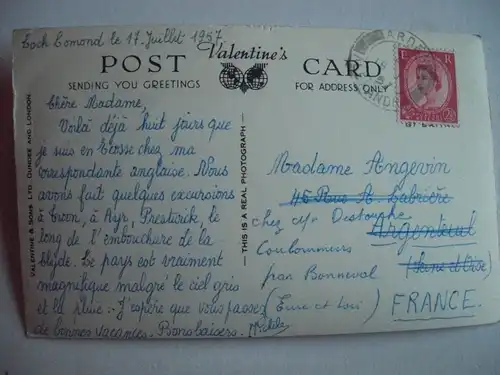 Loch Lomond le 17 Juillet 1957
Valentine's
POST CARD
SENDING YOU GREETINGS
FOR ADDRESS ONLY
E R
VALENTINE & SONS LTD. DUNDEE AND LONDON
THIS IS A REAL PHOTOGRAPH
Chère Madame,
Voilà déjà huit jours que
je suis en Ecosse chez ma
correspondante anglaise. Nous
avons fait quelques excursions
à Troon, à Ayr, Prestwick, le
long de l'embouchure de la
Clyde. Le pays est vraiment
magnifique malgré le ciel gris
et la pluie. J'espère que vous passez
de bonnes vacances. Bons baisers.
Michèle
Madame Angevin
46 Rue A. Labrière
chez Mr Destouphe
Argenteuil
Coulommiers
(Seine et Oise)
par Bonneval
(Eure et Loir)
FRANCE